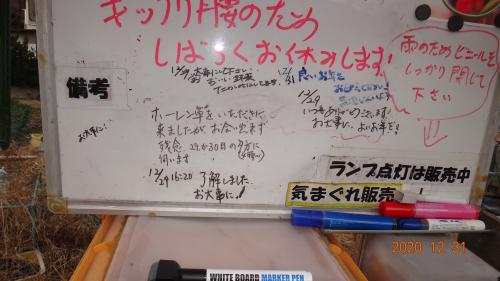 ギックリ腰のため
しばらくお休みします
雨のためビニールを
しっかり閉じて
下さい
備考
12/31
良いお年を
12/29
いつもありがとうございます
お大事に。よいお年を!
お大事に。
ホーレン草をいただきに
来ましたが、お会い出来ず
残念 29か30日の夕方に
伺います
12/29 16:20 了解しました
お大事に!
ランプ点灯は販売中
気まぐれ販売
2020 12 31
WHITE BOARD MARKER PEN